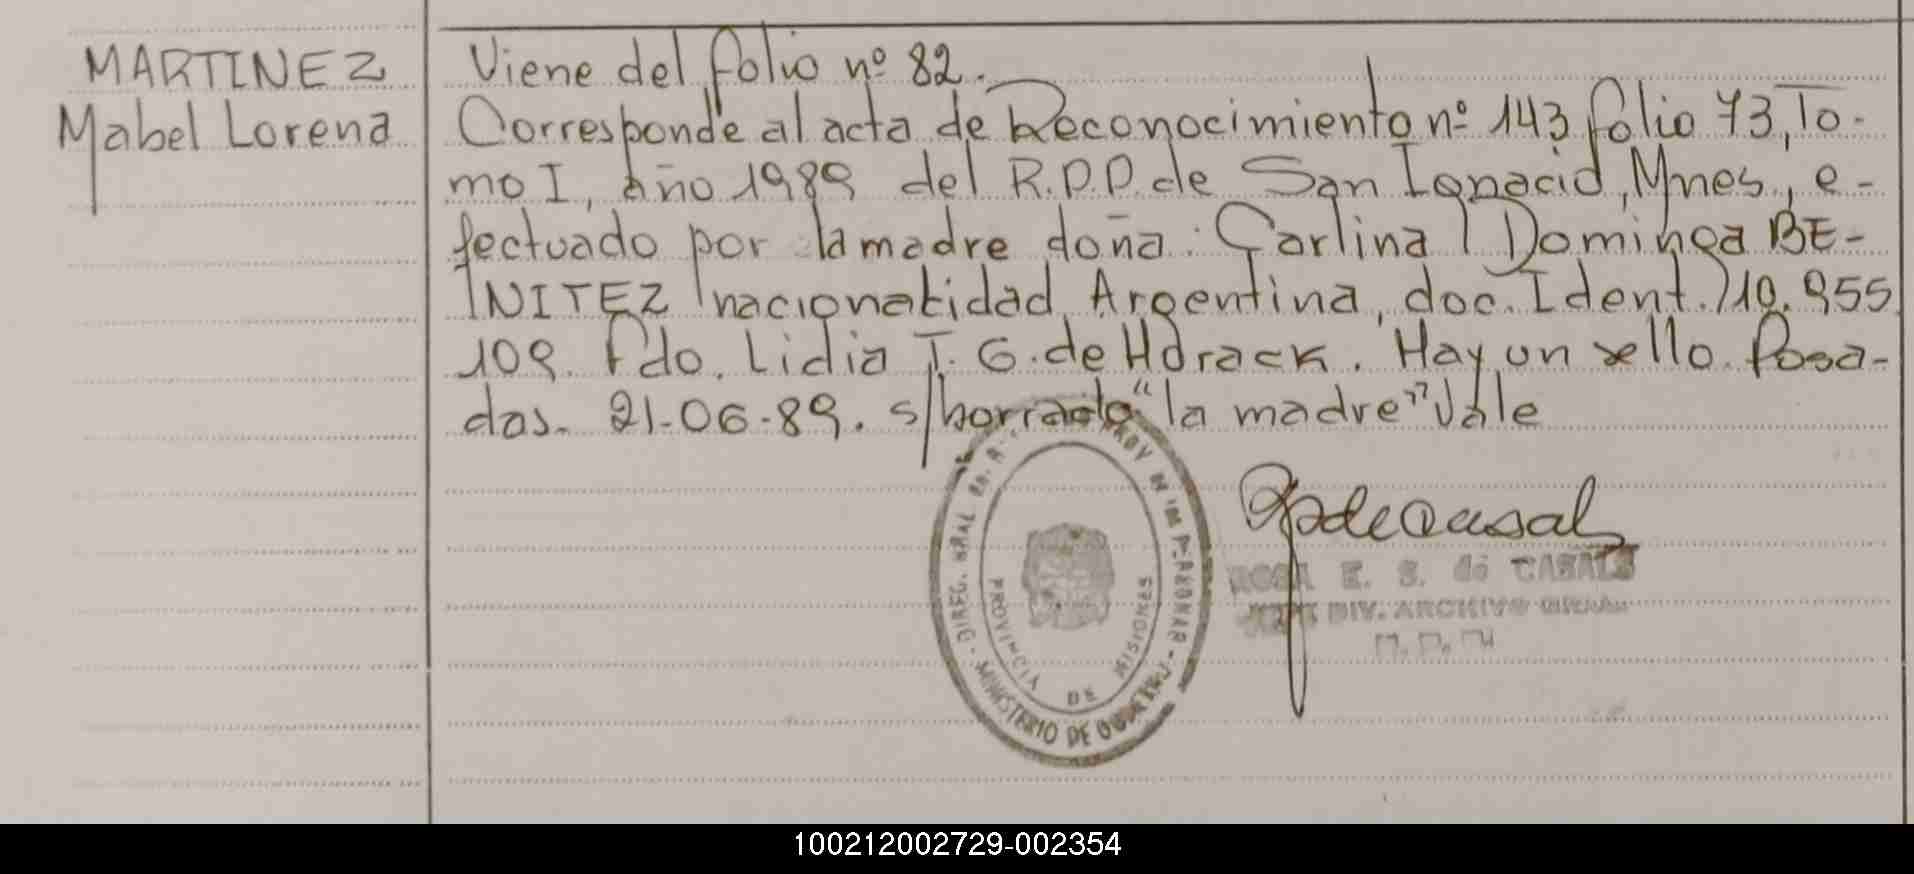 MARTINEZ
Mabel Lorena
Viene del folio nº 82.
Corresponde al acta de Reconocimiento nº 143 folio 73, To-
mo I, año 1989 del R.P.P. de San Ignacio, Mnes, e-
fectuado por la madre doña: Carlina Dominga BE-
NITEZ nacionalidad Argentina, doc. Ident. 10.955
109. Fdo. Lidia T. G. de Horack. Hay un sello. Posa-
das. 21-06-89. s/borrado "la madre" Vale
DIREC. GRAL
MINISTERIO DE GOBIERNO
PROVINCIA DE MISIONES
ROSA E. S. de CASALS
JEFE DIV. ARCHIVO GRAL.
100212002729-002354